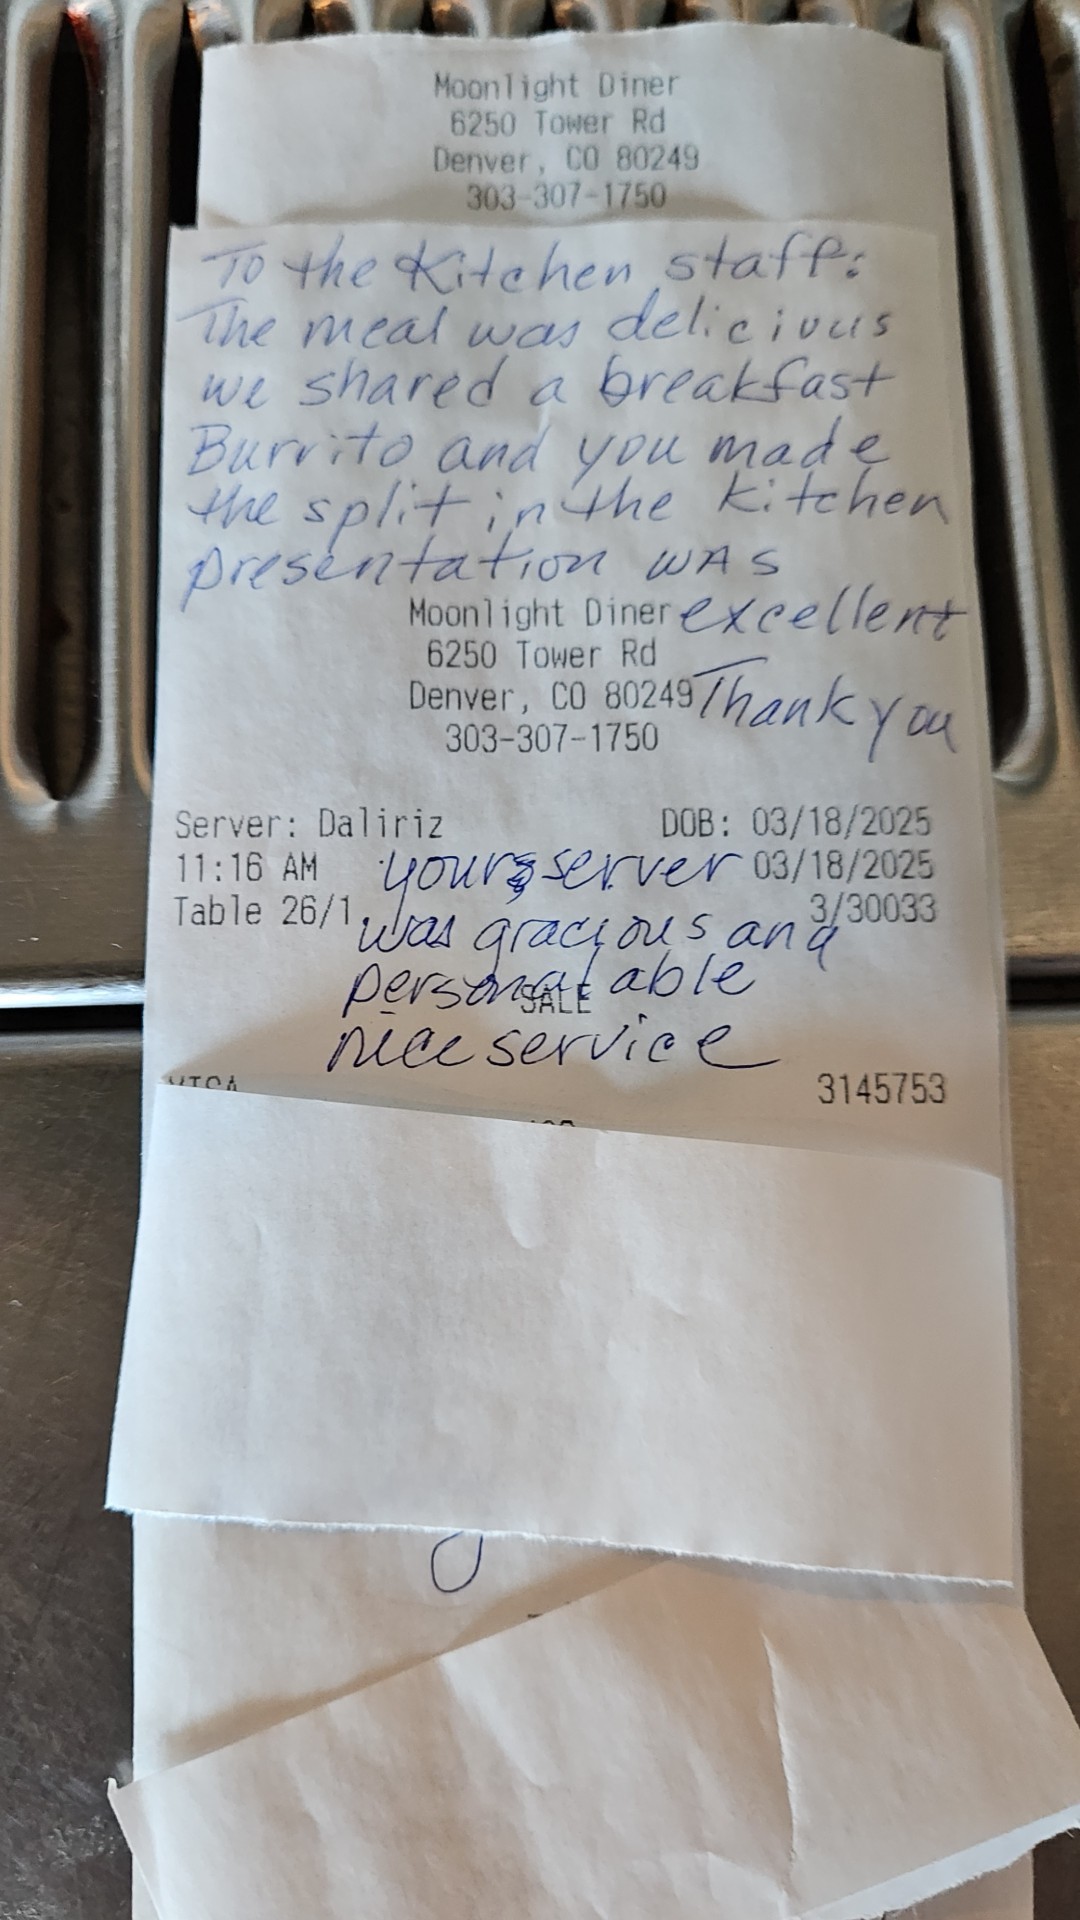 Moonlight Diner
6250 Tower Rd
Denver, CO 80249
303-307-1750
To the Kitchen staff:
The meal was delicious
we shared a breakfast
Burrito and you made
the split in the kitchen
presentation WAS
Moonlight Diner excellent
6250 Tower Rd
Denver, CO 80249 Thank you
303-307-1750
Server: Daliriz DOB: 03/18/2025
11:16 AM your server 03/18/2025
Table 26/1 was gracious and 3/30033
personable
SALE
nice service
VISA 3145753